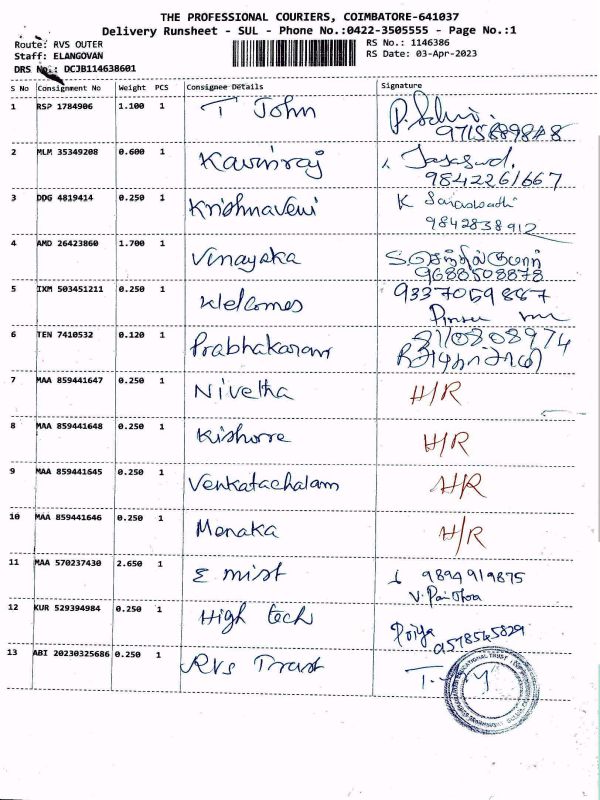 THE PROFESSIONAL COURIERS, COIMBATORE-641037
Delivery Runsheet - SUL - Phone No.:0422-3505555 - Page No.:1
Route: RVS OUTER
RS No.: 1146386
Staff: ELANGOVAN
RS Date: 03-Apr-2023
DRS No.: DCJB114638601
S No Consignment No Weight PCS Consignee Details Signature
1 RSP 1784906 1.100 1 T John
2 MLM 35349208 0.600 1 Kavinraj
9842261667
3 DDG 4819414 0.250 1 Krishnaveni K
9842838912
4 AMD 26423860 1.700 1 Vinayaka S. செந்தில்குமார்
9688508878
5 IXM 503451211 0.250 1 Welcomes 9337059887
6 TEN 7410532 0.120 1 Prabhakaram 8110808974
7 MAA 859441647 0.250 1 Nivetha H/R
8 MAA 859441648 0.250 1 Kishorre H/R
9 MAA 859441645 0.250 1 Venkatachalam H/R
10 MAA 859441646 0.250 1 Menaka H/R
11 MAA 570237430 2.650 1 E mist 9894919875
12 KUR 529394984 0.250 1 High tech Priya
9578565829
13 ABI 20230325686 0.250 1 RVS Trust